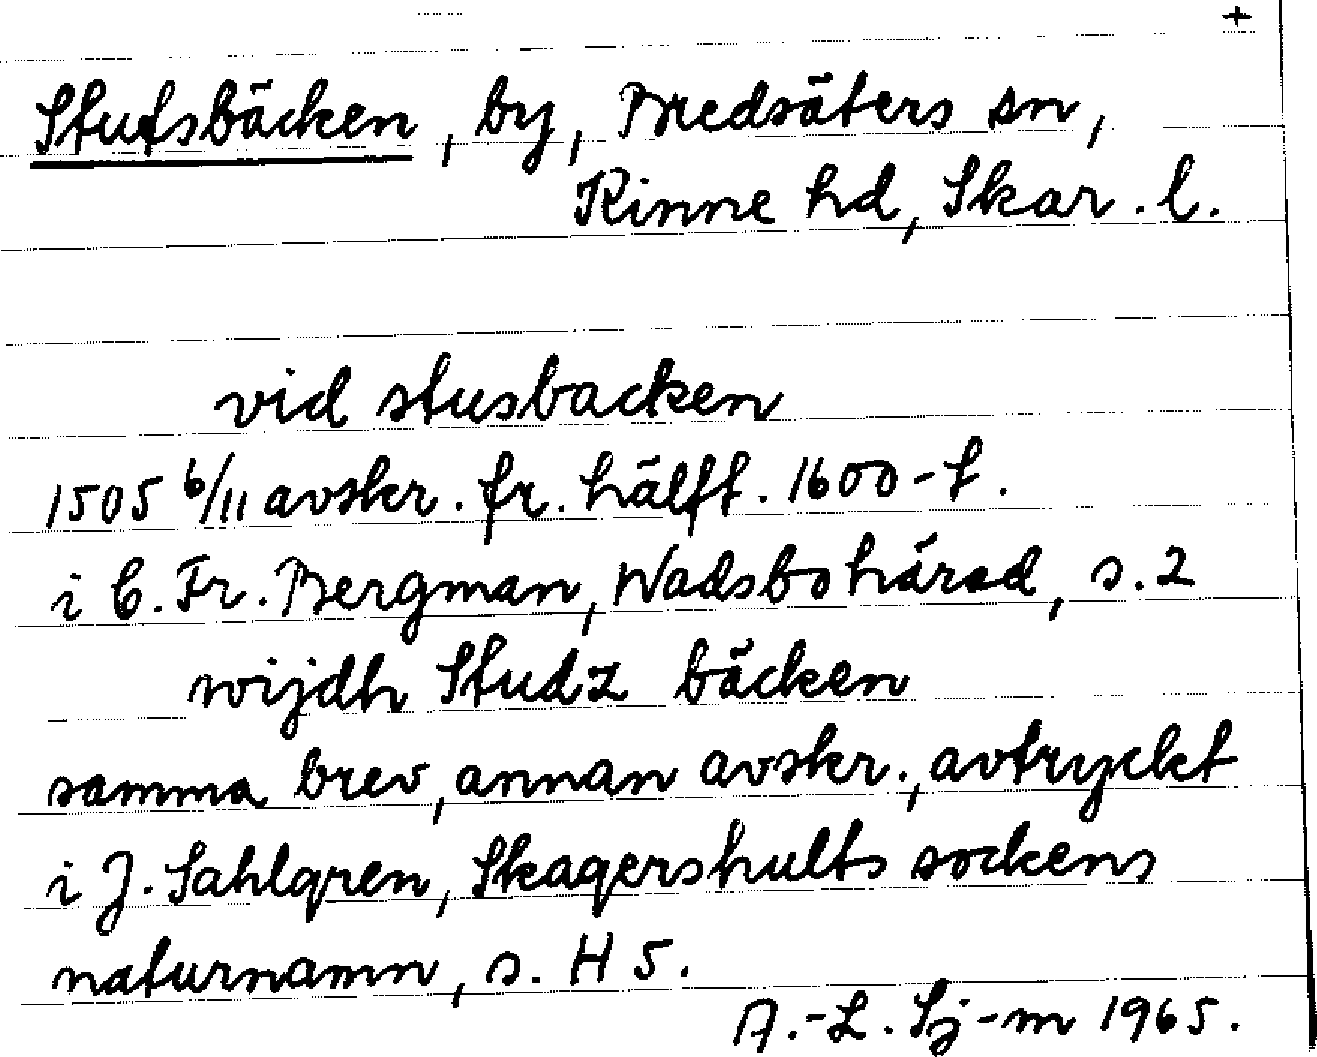 +
Stufsbäcken, by, Bredsäters sn,
Kinne hd, Skar. l.
vid stusbacken
1505 6/11 avskr. fr. hälft. 1600-t.
i C. Fr. Bergman, Wadsbo härad, s. 2
wijdh Studz bäcken
samma brev, annan avskr., avtryckt
i J. Sahlgren, Skagershults sockens
naturnamn, s. H 5.
A.-L. Sj-m 1965.